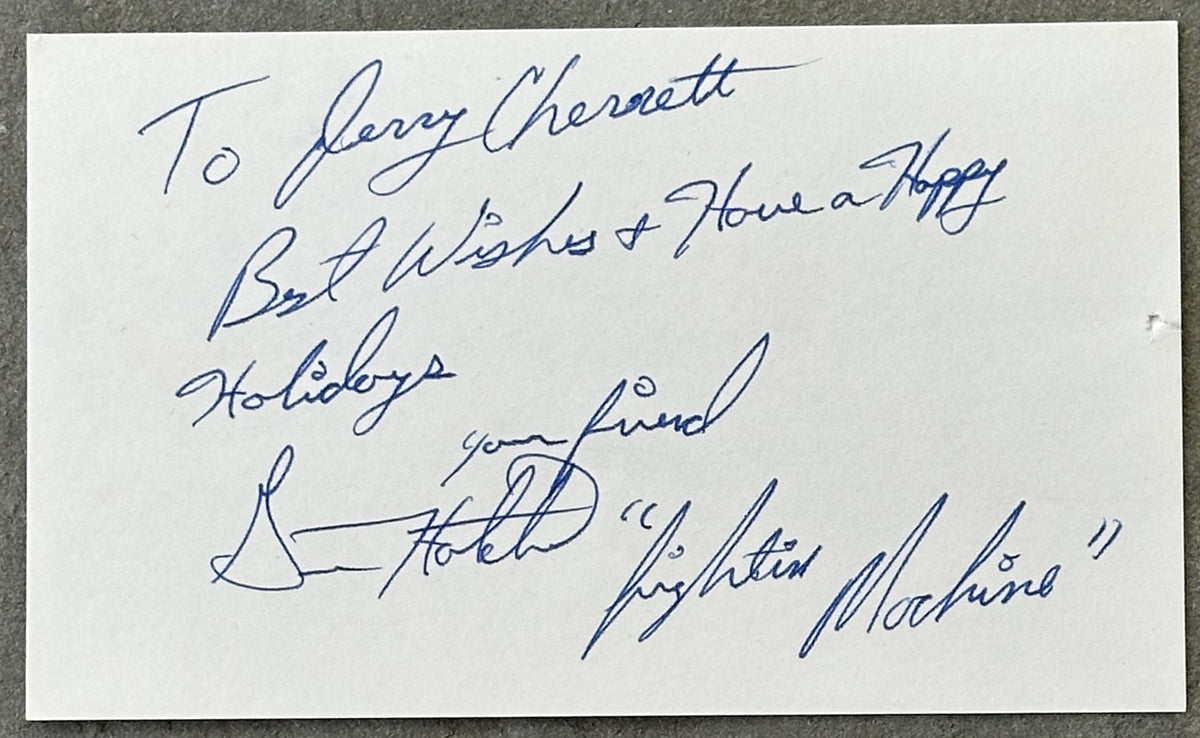 To Jerry Chernett
Best Wishes & Have a Happy
Holidays
your friend
"Fightin Machine"